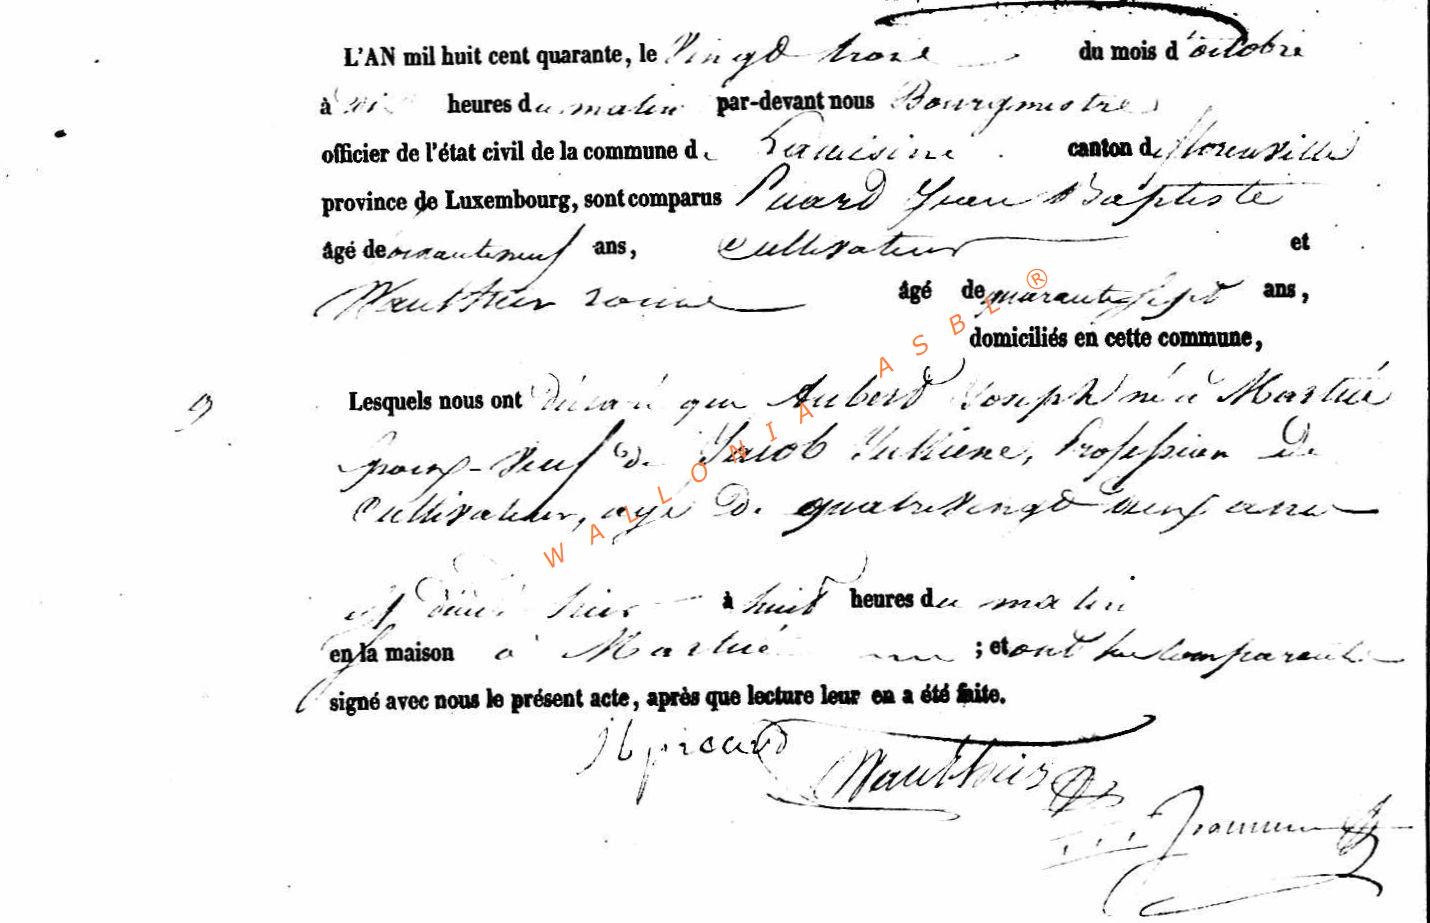 L'AN mil huit cent quarante, le Vingt trois du mois d'octobre
à heures du matin par-devant nous Bourgmestre
officier de l'état civil de la commune de canton de florenville
province de Luxembourg, sont comparus Picard Jean Baptiste
âgé de ans, Cultivateur et
Wauthier âgé de quarante sept ans,
domiciliés en cette commune,
Lesquels nous ont déclaré que Aubert Joseph né à Martué
veuf de Jacob Julliene, Profession de
Cultivateur, agé de quatrevingt deux ans
est décédé hier à huit heures du matin
en la maison à Martué ; et ont les comparants
signé avec nous le présent acte, après que lecture leur en a été faite.
JB picard
Wauthier
WALLONIA ASBL ®